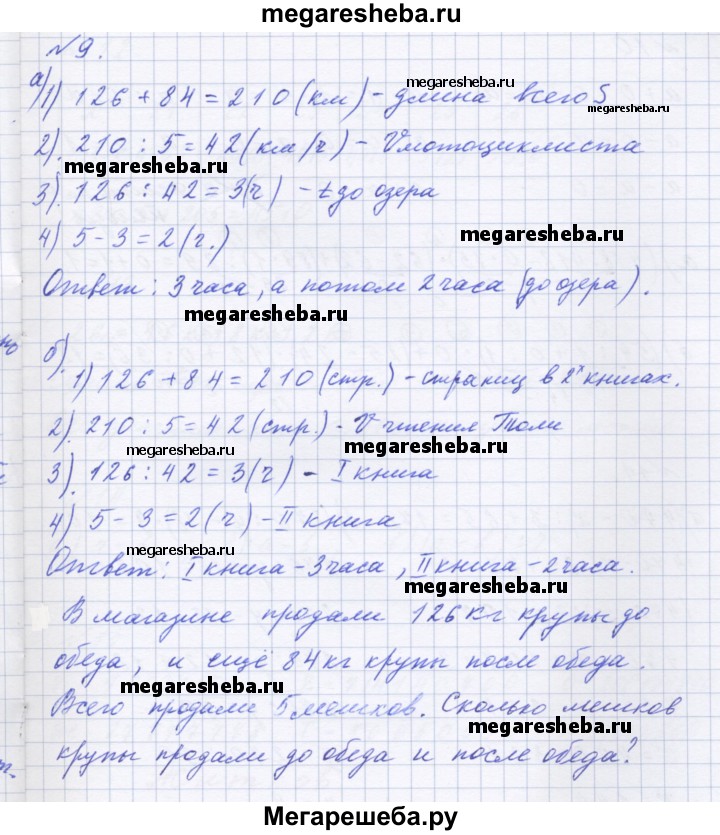 megaresheba.ru
№9.
а) 1) 126 + 84 = 210 (км) - длина всего S
megaresheba.ru
megaresheba.ru
2). 210 : 5 = 42 (км/ч) - Vмотоциклиста
megaresheba.ru
3). 126 : 42 = 3(ч) - t до озера
4) 5 - 3 = 2 (г.)
megaresheba.ru
Ответ: 3 часа, а потом 2 часа (до озера).
megaresheba.ru
б).
1) 126 + 84 = 210 (стр.) - страниц в 2х книгах.
2). 210 : 5 = 42 (стр.) - V чтения Толи
megaresheba.ru
megaresheba.ru
3). 126 : 42 = 3(ч) - I книга
4) 5 - 3 = 2(ч) - II книга
megaresheba.ru
Ответ: I книга - 3 часа, II книга - 2 часа.
megaresheba.ru
В магазине продали 126 кг крупы до
обеда, и ещё 84 кг крупы после обеда.
megaresheba.ru
Всего продали 5 мешков. Сколько мешков
megaresheba.ru
крупы продали до обеда и после обеда?
Мегарешеба.ру